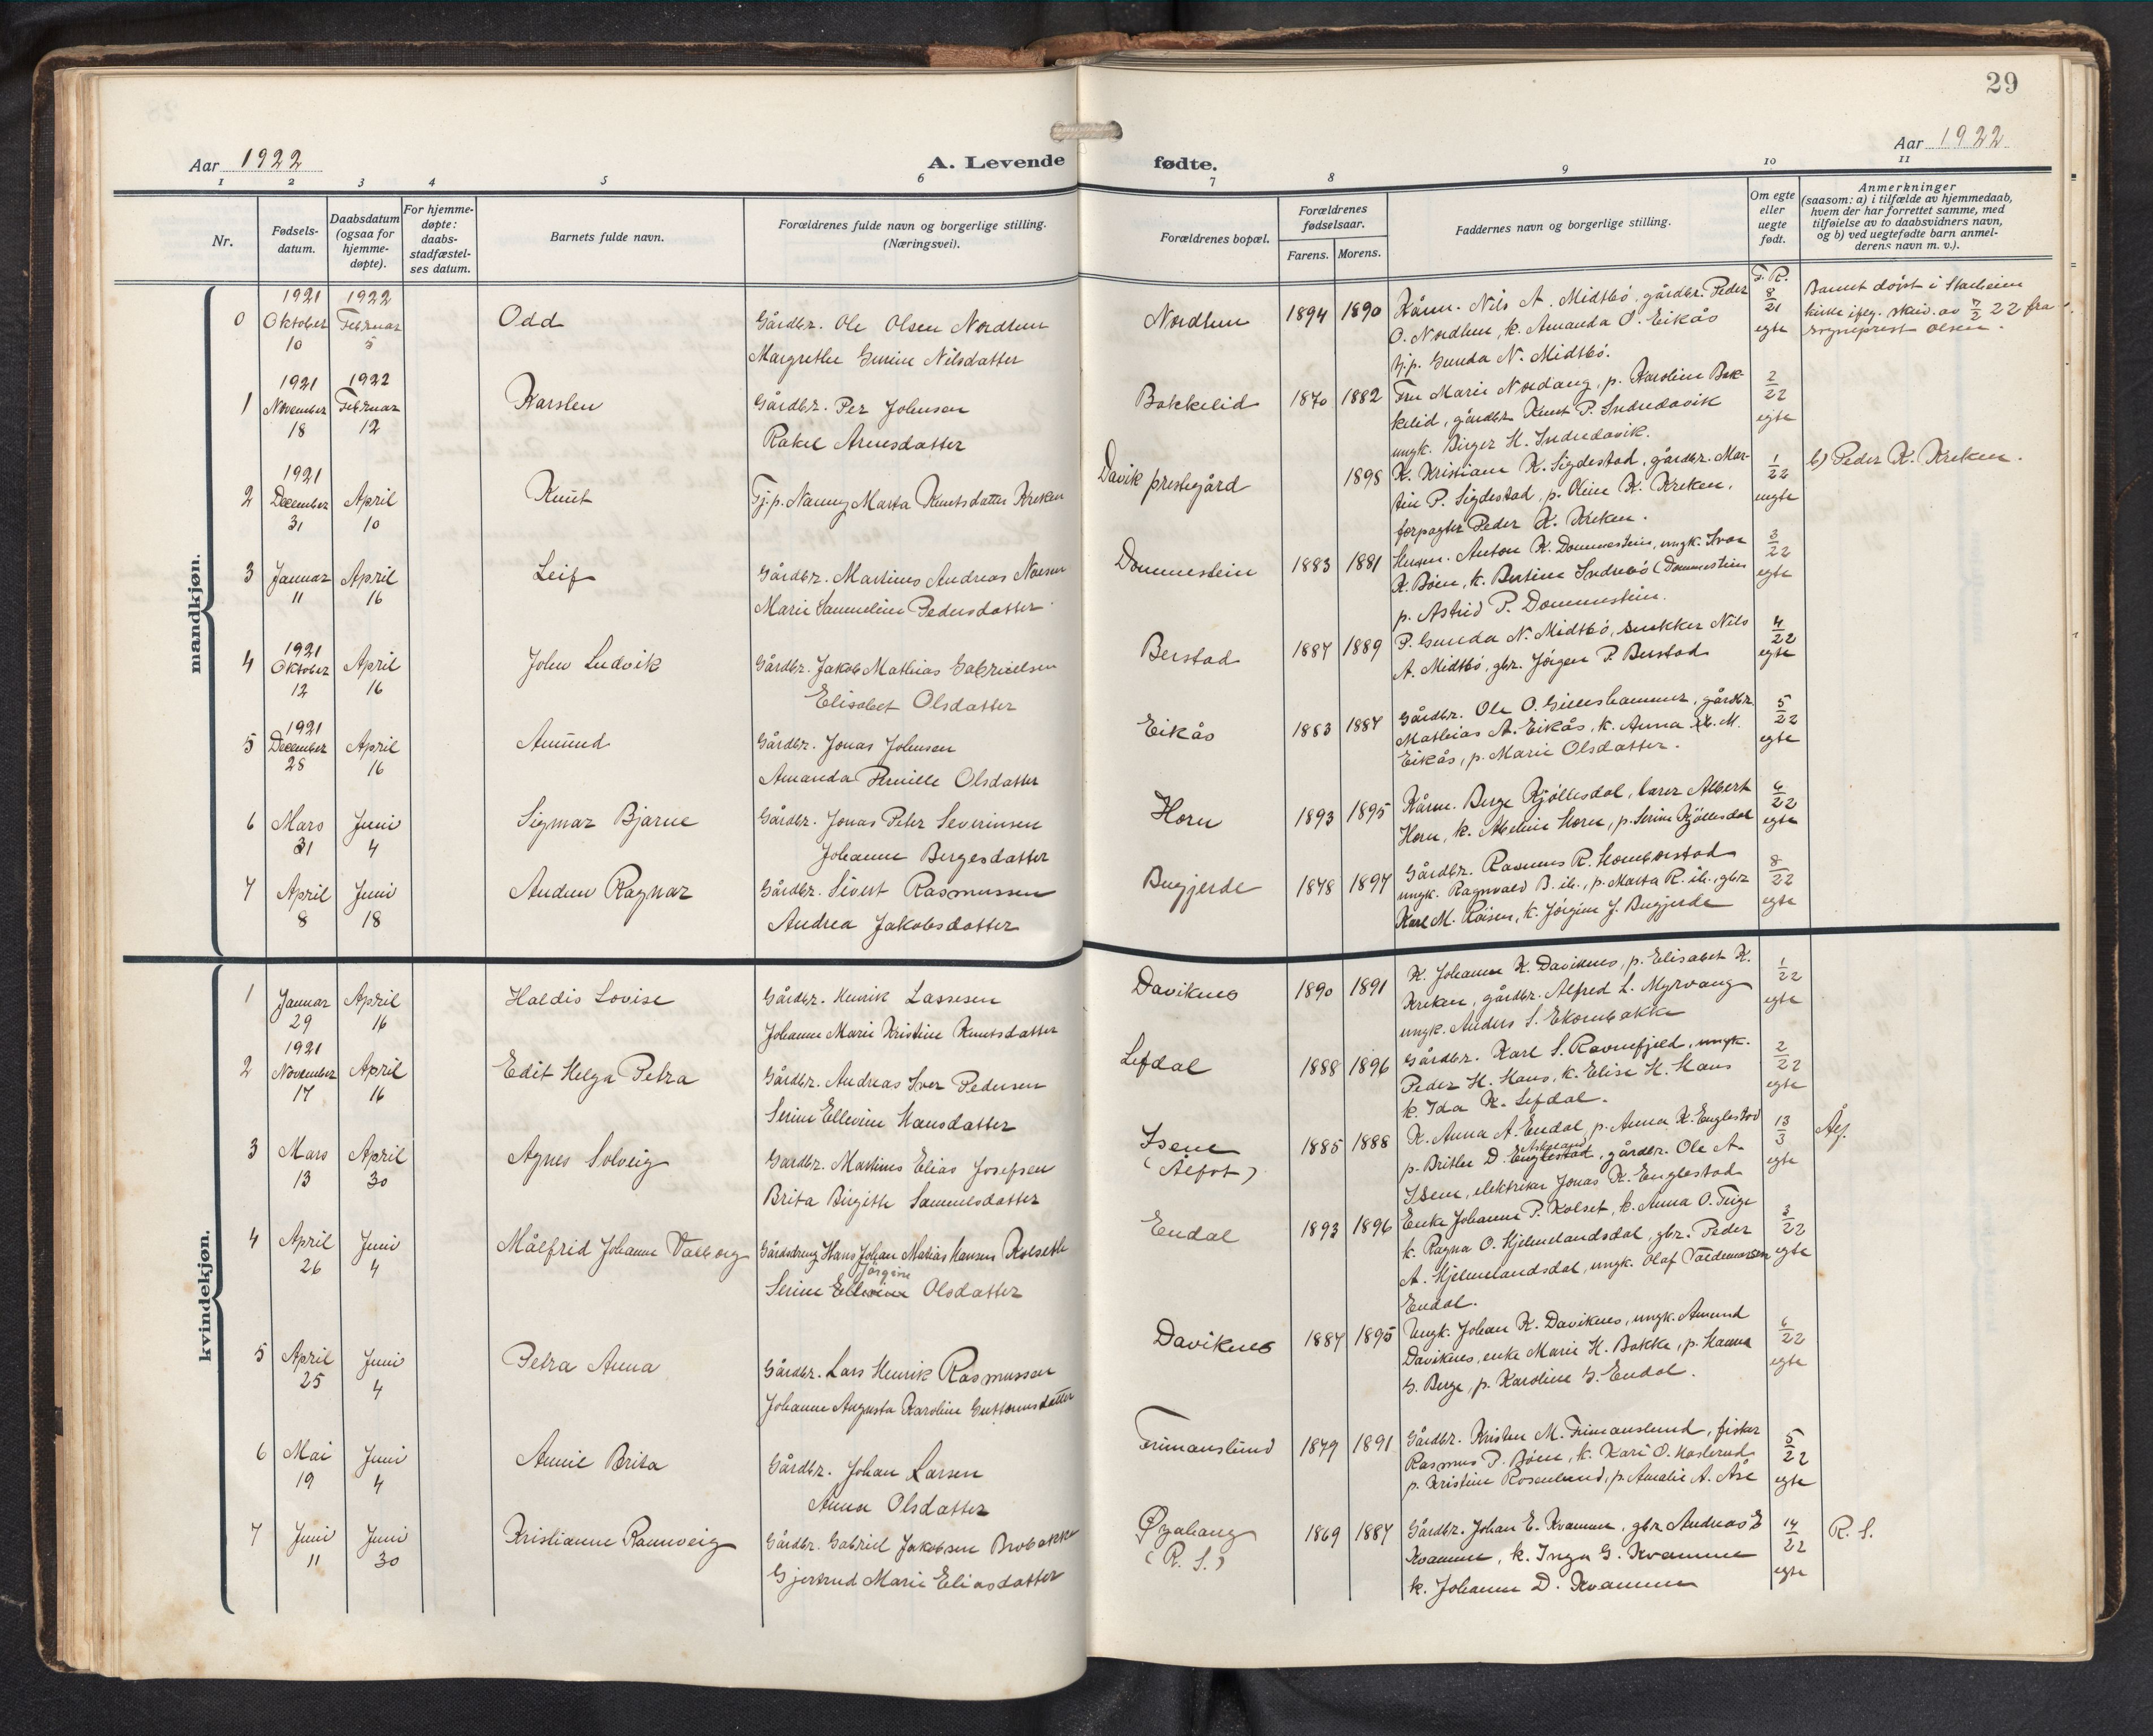 29
Aar 1922
A. Levende
fødte.
Aar 1922
1 2 3 4 5 6 7 8 9 10 11
Nr.
Fødsels-
datum.
Daabsdatum
(ogsaa for
hjemme-
døpte).
For hjemme-
døpte:
daabs-
stadfæstel-
ses datum.
Barnets fulde navn.
Forældrenes fulde navn og borgerlige stilling.
(Næringsvei).
Forældrenes bopæl.
Forældrenes
fødselsaar.
Farens. Morens.
Faddernes navn og borgerlige stilling.
Om egte
eller
uegte
født.
Anmerkninger
(saasom: a) i tilfælde av hjemmedaab,
hvem der har forrettet samme, med
tilføielse av to daabsvidners navn,
og b) ved uegtefødte barn anmel-
derens navn m. v.).
mandkjøn.
0
1921
Oktober
10
1922
Februar
5
Odd
Gårdbr. Ole Olsen Nordhun
Margrethe Serine Nilsdatter
Nordhun
1894 1890
Kårm. Nils A. Midtbö, gårdbr. Peder
O. Nordhun, k. Amanda O. Eikås
tj.p. Gunda N. Midtbö.
F. R.
8/21
egte
Barnet döpt i Starheim
kirke ifölg. skriv. av 7/2 22 fra
sogneprest Olsen.
1
1921
November
18
1922
Februar
12
Karsten
Gårdbr. Per Johnsen
Rakel Arnesdatter
Bakkelid
1870 1882
Fru Marie Nordang, p. Karoline Bak-
kelid, gårdbr. Knut P. Indredavik
ungk. Birger H. Indredavik.
2/22
egte
2
1921
December
31
April
10
Knut
Tj.p. Nanny Marta Knutsdatter Kreken
Davik prestegård
1898
K. Kristiane K. Sigdestad, gårdbr. Mar-
tin P. Sigdestad, p. Oline K. Kreken,
forpagter Peder K. Kreken.
1/22
uegte
b) Peder K. Kreken.
3
Januar
11
April
16
Leif
Gårdbr. Martinus Andreas
Marie Sammeline Pedersdatter
Dommestein
1883 1881
Husm. Anton K. Dommestein, ungk. Ivar
K. Böen, k. Bertine Indrebö (Dommestein
p. Astrid P. Dommestein.
3/22
egte
4
1921
Oktober
12
April
16
John Ludvik
Gårdbr. Jakob Mathias Gabrielsen
Elisabet Olsdatter
Berstad
1887 1889
P. Gunda N. Midtbö, snekker Nils
A. Midtbö, gbr. Jörgen P. Berstad
4/22
egte
5
1921
December
28
April
16
Amund
Gårdbr. Jonas Johnsen
Amanda Pernille Olsdatter
Eikås
1883 1887
Gårdbr. Ole O. Gilleshammer, gårdbr.
Mathias A. Eikås, k. Anna M.
Eikås, p. Marie Olsdatter.
5/22
egte
6
Mars
31
Juni
4
Sigmar Bjarne
Gårdbr. Jonas Peter Severinsen
Johanne Bergesdatter
Horn
1893 1895
Kårm. Berge Kjöllesdal, lærer Albert
Horn, k. Abeline Horn, p. Serine Kjöllesdal
6/22
egte
7
April
8
Juni
18
Audun Ragnar
Gårdbr. Sivert Rasmussen
Andrea Jakobsdatter
Bugjerde
1878 1897
Gårdbr. Rasmus R. Hornborstad
ungk. Ragnvald B. ib., p. Marta R. ib., gbr.
Karl M. Röisen, k. Jörgine J. Bugjerde
8/22
egte
kvindekjøn.
1
Januar
29
April
16
Haldis Lovise
Gårdbr. Henrik Lassesen
Johanne Marie Kristine Knutsdatter
Daviknes
1890 1891
K. Johanne K. Daviknes, p. Elisabet K.
Kreken, gårdbr. Alfred L. Myrvang
ungk. Anders S. Ekornbakke
1/22
egte
2
1921
November
17
April
16
Edit Helga Petra
Gårdbr. Andreas Iver Pedersen
Serine Ellevine Hansdatter
Lefdal
1888 1896
Gårdbr. Karl S. Ravnefjeld, ungk.
Peder H. Haus, k. Elise H. Haus
k. Ida K. Lefdal.
2/22
egte
3
Mars
13
April
30
Agnes Solveig
Gardbr. Martinus Elias Josefsen
Brita Birgitte Samuelsdatter
Isene
(Ålfot)
1885 1888
K. Anna A. Endal, p. Anna K. Englestad
p. Brithe D. Englestad, gårdbr. Ole A.
Isene, elektriker Jonas K. Englestad
13/3
egte
Ålf.
4
April
26
Juni
4
Målfrid Johanne Valborg
Gårdsdreng Hans Johan Matias Hansen Kolseth
Jörgine
Serine Ellevine Olsdatter
Endal
1893 1896
Enke Johanne P. Kolset, k. Anna O. Teige
k. Ragna O. Hjelmelandsdal, gbr. Peder
A. Hjelmelandsdal, ungk. Olaf Valdemarsen
Endal.
3/22
egte
5
April
25
Juni
4
Petra Anna
Gårdbr. Lars Henrik Rasmussen
Johanne Augusta Karoline Guttormsdatter
Daviknes
1887 1895
Ungk. Johan K. Daviknes, ungk. Amund
Daviknes, enke Marie H. Bakke, p. Hanna
G. Berge, p. Karoline G. Endal.
6/22
egte
6
Mai
19
Juni
4
Annie Brita
Gårdbr. Johan Larsen
Anna Olsdatter
Frimanslund
1879 1891
Gårdbr. Kristen M. Frimanslund, fisker
Rasmus P. Böen, k. Kari O. Haslerud
p. Kristine Rosenlund, p. Amalie A. Åse
5/22
egte
7
Juni
11
Juni
30
Kristianne Raunveig
Gårdbr. Gabriel Jakobsen Brobakke
Gjertrud Marie Eliasdatter
Øyahaug
(R. S.)
1869 1887
Gårdbr. Johan E. Kvamme, gbr. Andreas E
Kvamme, k. Inga G. Kvamme
k. Johanne D. Kvamme
14/22
egte
R. S.